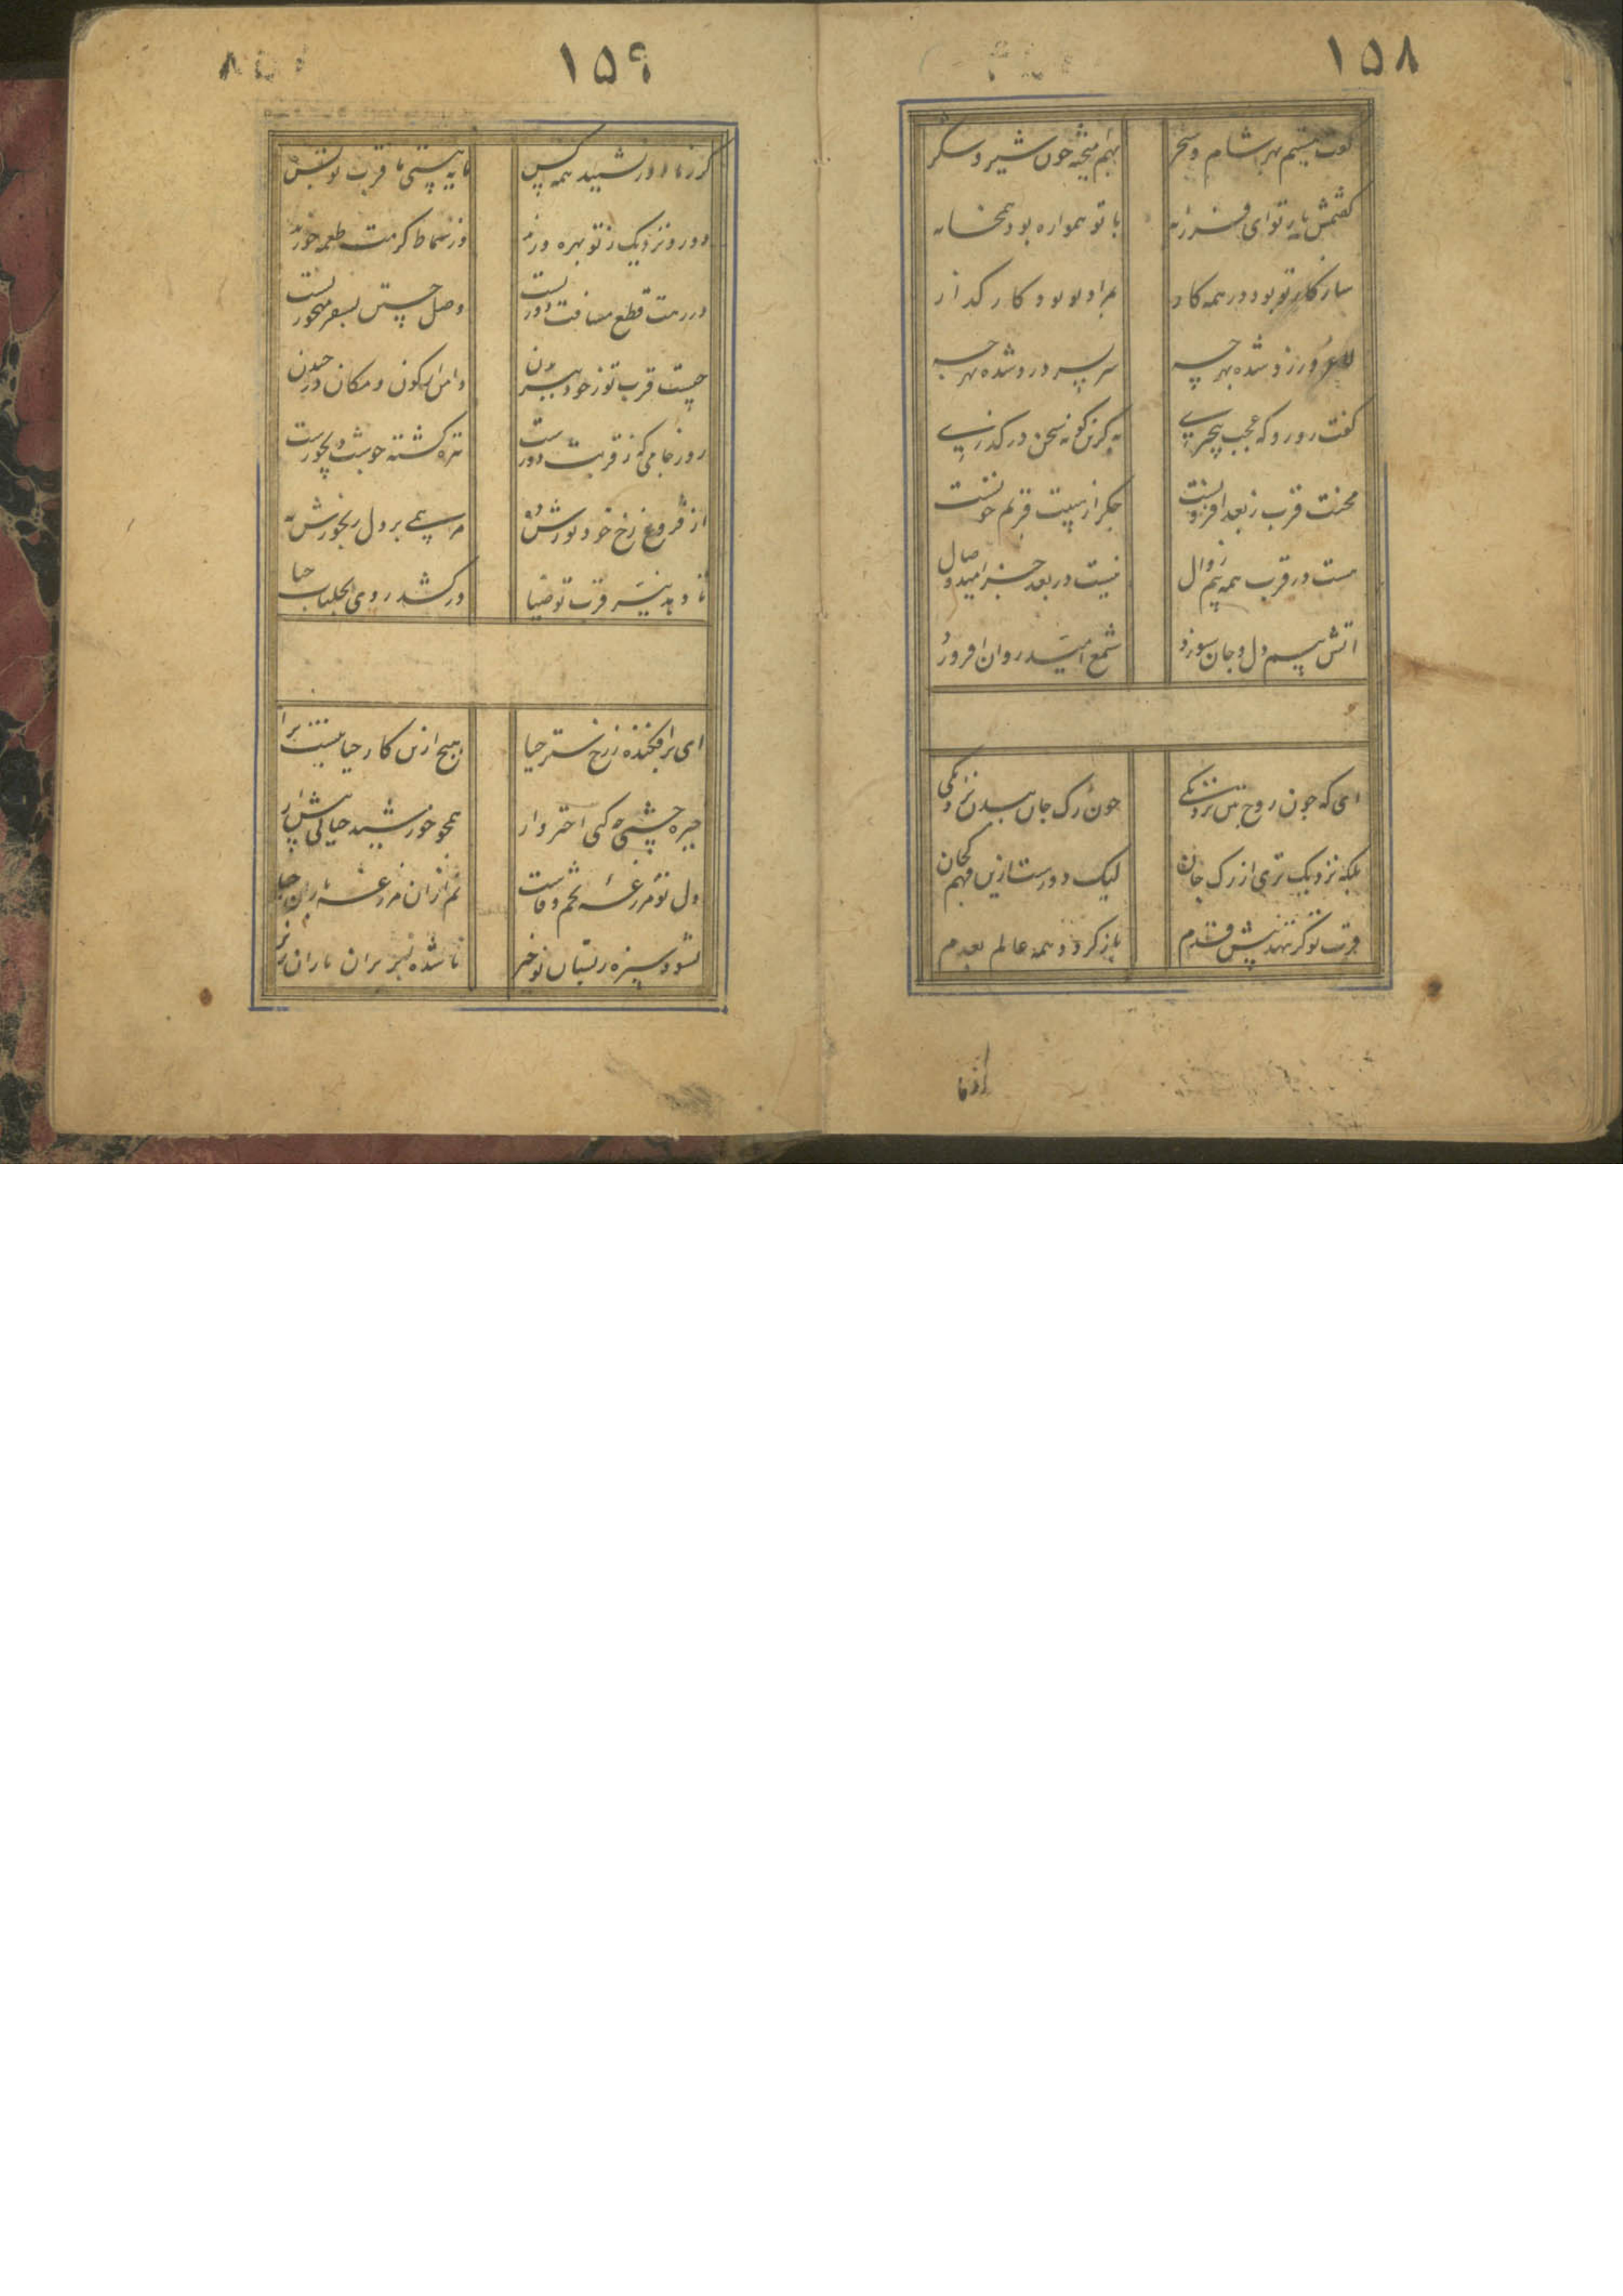 ۱۵۸
گفت هستیم بهر شام و سحر
بهم آمیخته چون شیر و شکر
گفتمش یار تو ای فرزانه
با تو همواره بود همخانه
سازگار تو بود در همه کار
بر مراد تو بود کارگذار
لاغر و زرد شده بهر چه
سر بسر درد شده بهر چه
گفت رو رو که عجب بیخبری
به کزین گونه سخن درگذری
محنت قرب ز بعد افزونست
جگر از هیبت قربم خونست
هست در قرب همه بیم زوال
نیست در بعد جز امید وصال
آتش بیم دل و جان سوزد
شمع امید روان افروزد
ای که چون روح بتن نزدیکی
چون رگ جان ببدن نزدیکی
بلکه نزدیک تری از رگ جان
لیک دورست ازین فهم گمان
قرب تو گر ننهد پیش قدم
باز گردد همه عالم بعدم
۱۵۹
گرنه از دور نشینند همه کس
مایه هستی ما قرب تو بس
دور و نزدیک ز تو بهره ورند
وز سماط کرمت طعمه خورند
در رهت قطع مسافت دوریست
وصل جستن بسفر مهجوریست
چیست قرب تو ز خود بیرون
دامن از کون و مکان در چیدن
روز جامی که ز قربت دورست
تیره گشته چو شب دیجورست
از فروغ رخ خود نورش ده
مرهمی بر دل رنجورش نه
تا دهد نیر قرب تو ضیا
در کشد روی بجلباب حیا
ای برافکنده ز رخ ستر حیا
هیچ ازین کار حیا نیست ترا
خیره چشمی چو کنی اختر وار
همچو خورشید حیا پیش آر
دل تو مزرعه تخم وفاست
نم از آن مزرعه باران حیاست
نشود سبزه بستان نوخیز
تا نشده نیز بر آن باران ریز